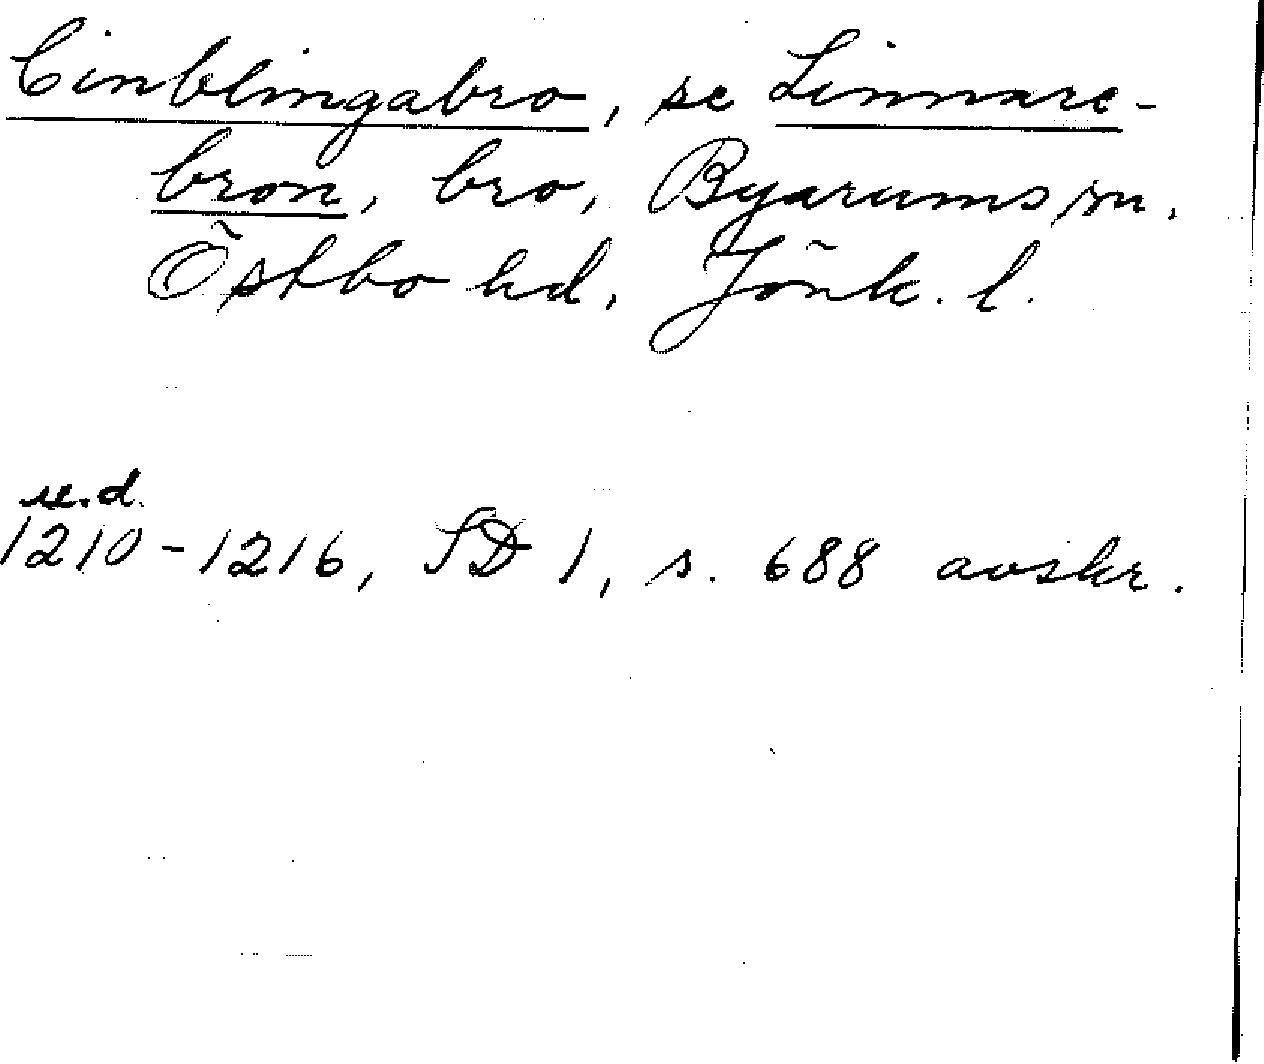 Cinblingabro, se Linnare-
bron, bro, Byarums sn,
Östbo hd, Jönk. l.
u.d.
1210-1216, SD 1, s. 688 avskr.